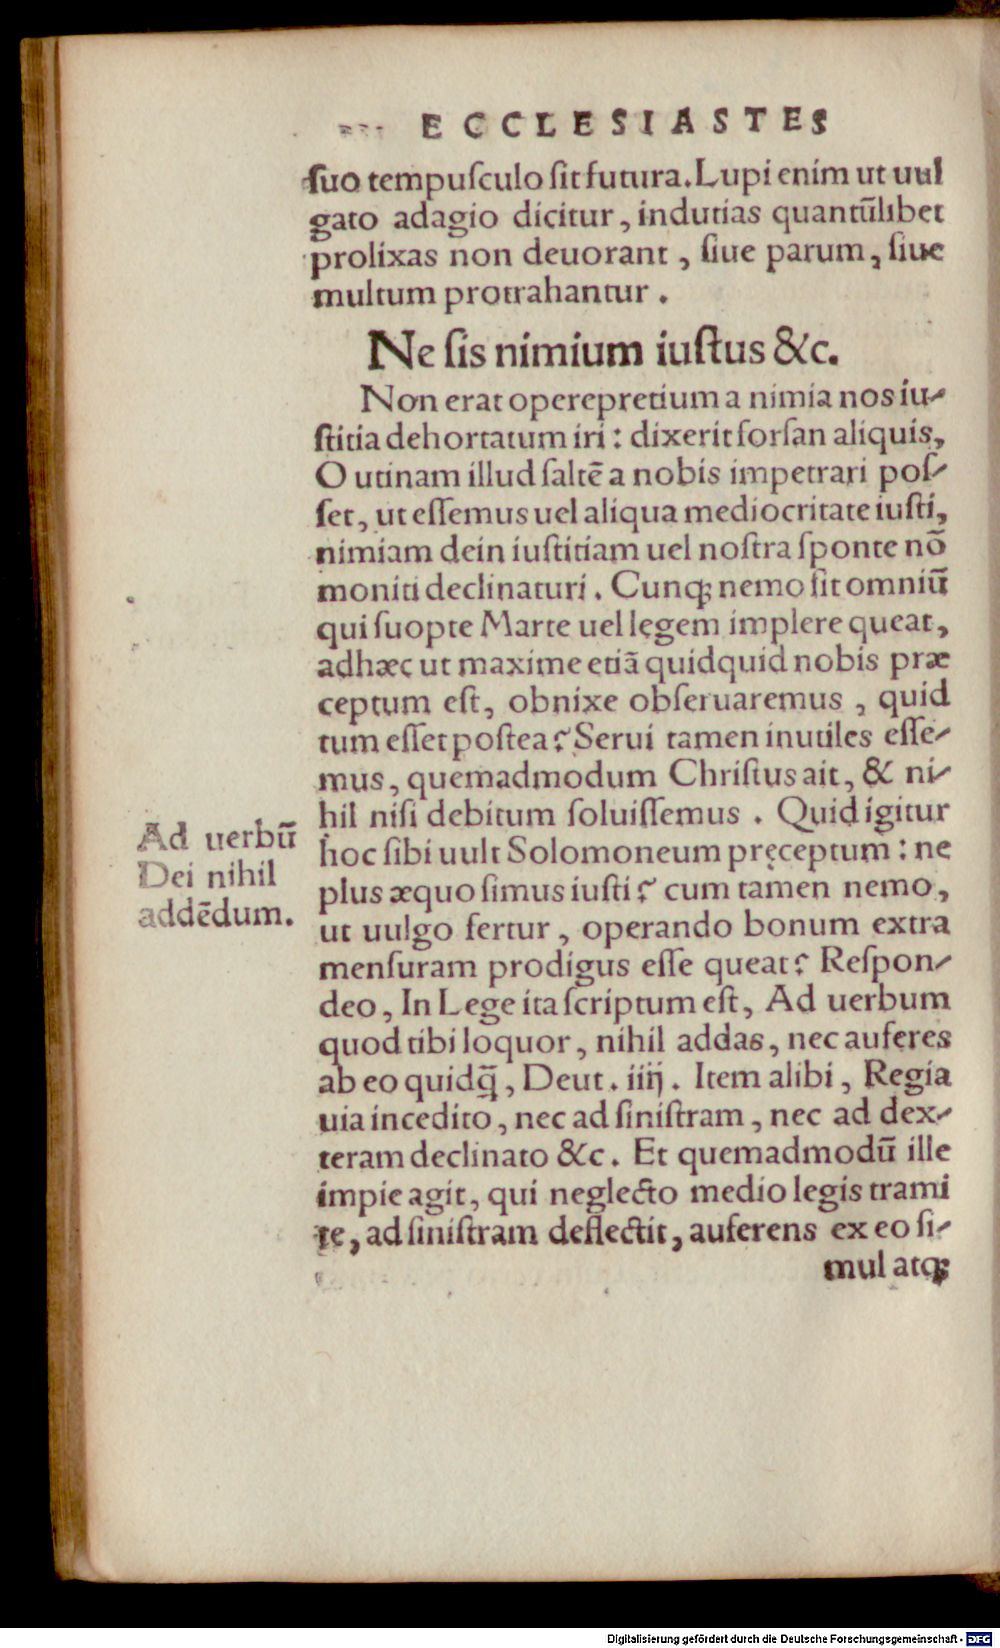 ECCLESIASTES
ſuo tempuſculo ſit futura. Lupi enim ut uul
gato adagio dicitur, indutias quantũlibet
prolixas non deuorant, ſiue parum, ſiue
multum protrahantur.
Ne ſis nimium iuſtus &c.
Non erat operepretium a nimia nos iu-
ſtitia dehortatum iri: dixerit forſan aliquis,
O utinam illud ſaltẽ a nobis impetrari poſ-
ſet, ut eſſemus uel aliqua mediocritate iuſti,
nimiam dein iuſtitiam uel noſtra ſponte nõ
moniti declinaturi. Cunq; nemo ſit omniũ
qui ſuopte Marte uel legem implere queat,
adhæc ut maxime etiã quidquid nobis præ
ceptum eſt, obnixe obſeruaremus, quid
tum eſſet poſtea? Serui tamen inutiles eſſe-
mus, quemadmodum Chriſtus ait, & ni-
hil niſi debitum ſoluiſſemus. Quid igitur
hoc ſibi uult Solomoneum pręceptum: ne
plus æquo ſimus iuſti? cum tamen nemo,
ut uulgo fertur, operando bonum extra
menſuram prodigus eſſe queat? Reſpon-
deo, In Lege ita ſcriptum eſt, Ad uerbum
quod tibi loquor, nihil addas, nec auferes
ab eo quidq̃, Deut. iiij. Item alibi, Regia
uia incedito, nec ad ſiniſtram, nec ad dex-
teram declinato &c. Et quemadmodũ ille
impie agit, qui neglecto medio legis trami
te, ad ſiniſtram deflectit, auferens ex eo ſi-
mul atq;
Ad uerbũ
Dei nihil
addẽdum.
Digitalisierung gefördert durch die Deutsche Forschungsgemeinschaft - DFG